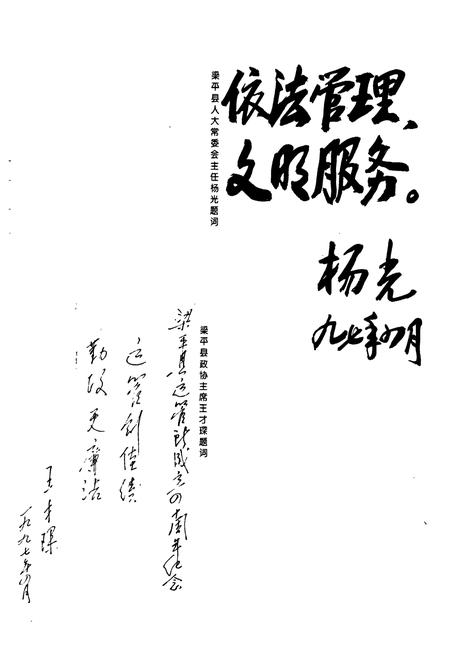 依法管理、
文明服务。
杨光
九七年四月
梁平县人大常委会主任杨光题词
梁平县政协主席王才琛题词
梁平县运管所成立四十周年纪念
运管创佳绩
勤政更廉洁
王才琛
一九九七年四月